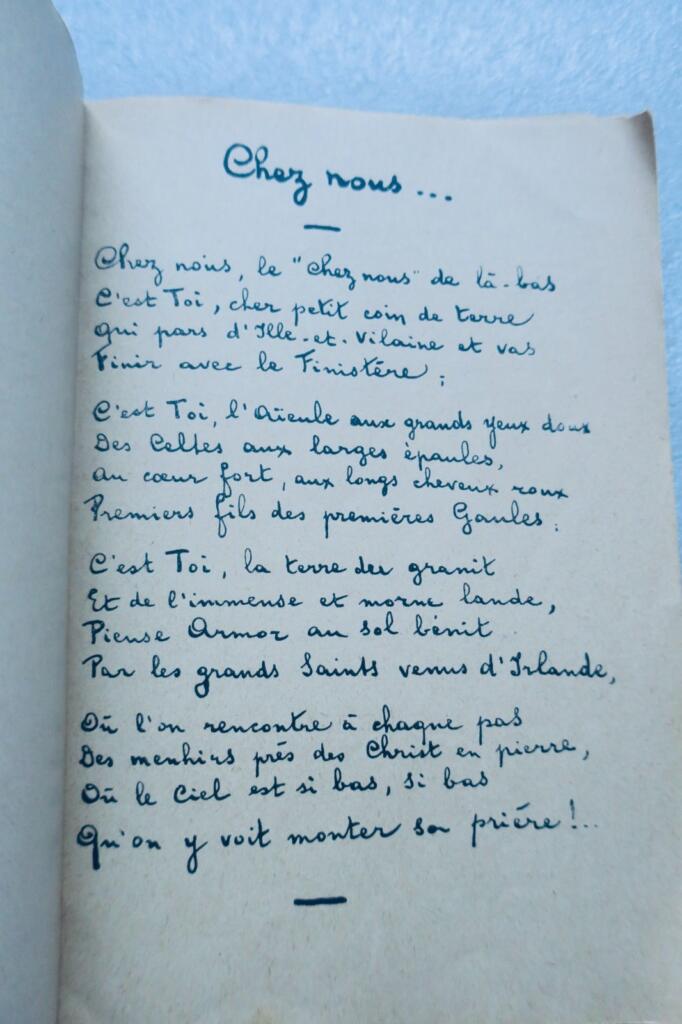 Chez nous...
Chez nous, le "Chez nous" de là-bas
C'est Toi, cher petit coin de terre
Qui pars d'Ille-et-Vilaine et vas
Finir avec le Finistére;
C'est Toi, l'Aïeule aux grands yeux doux
Des Celtes aux larges épaules,
Au cœur fort, aux longs cheveux roux
Premiers fils des premiéres Gaules;
C'est Toi, la terre du granit
Et de l'immense et morne lande,
Pieuse Armor au sol bénit
Par les grands Saints venus d'Irlande,
Où l'on rencontre à chaque pas
Des menhirs prés des Christ en pierre,
Où le Ciel est si bas, si bas
Qu'on y voit monter sa priére!..